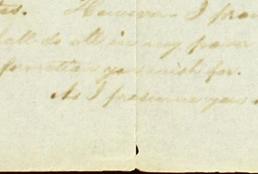 However I
shall do all in my power
formation you wish for.
As I presume you